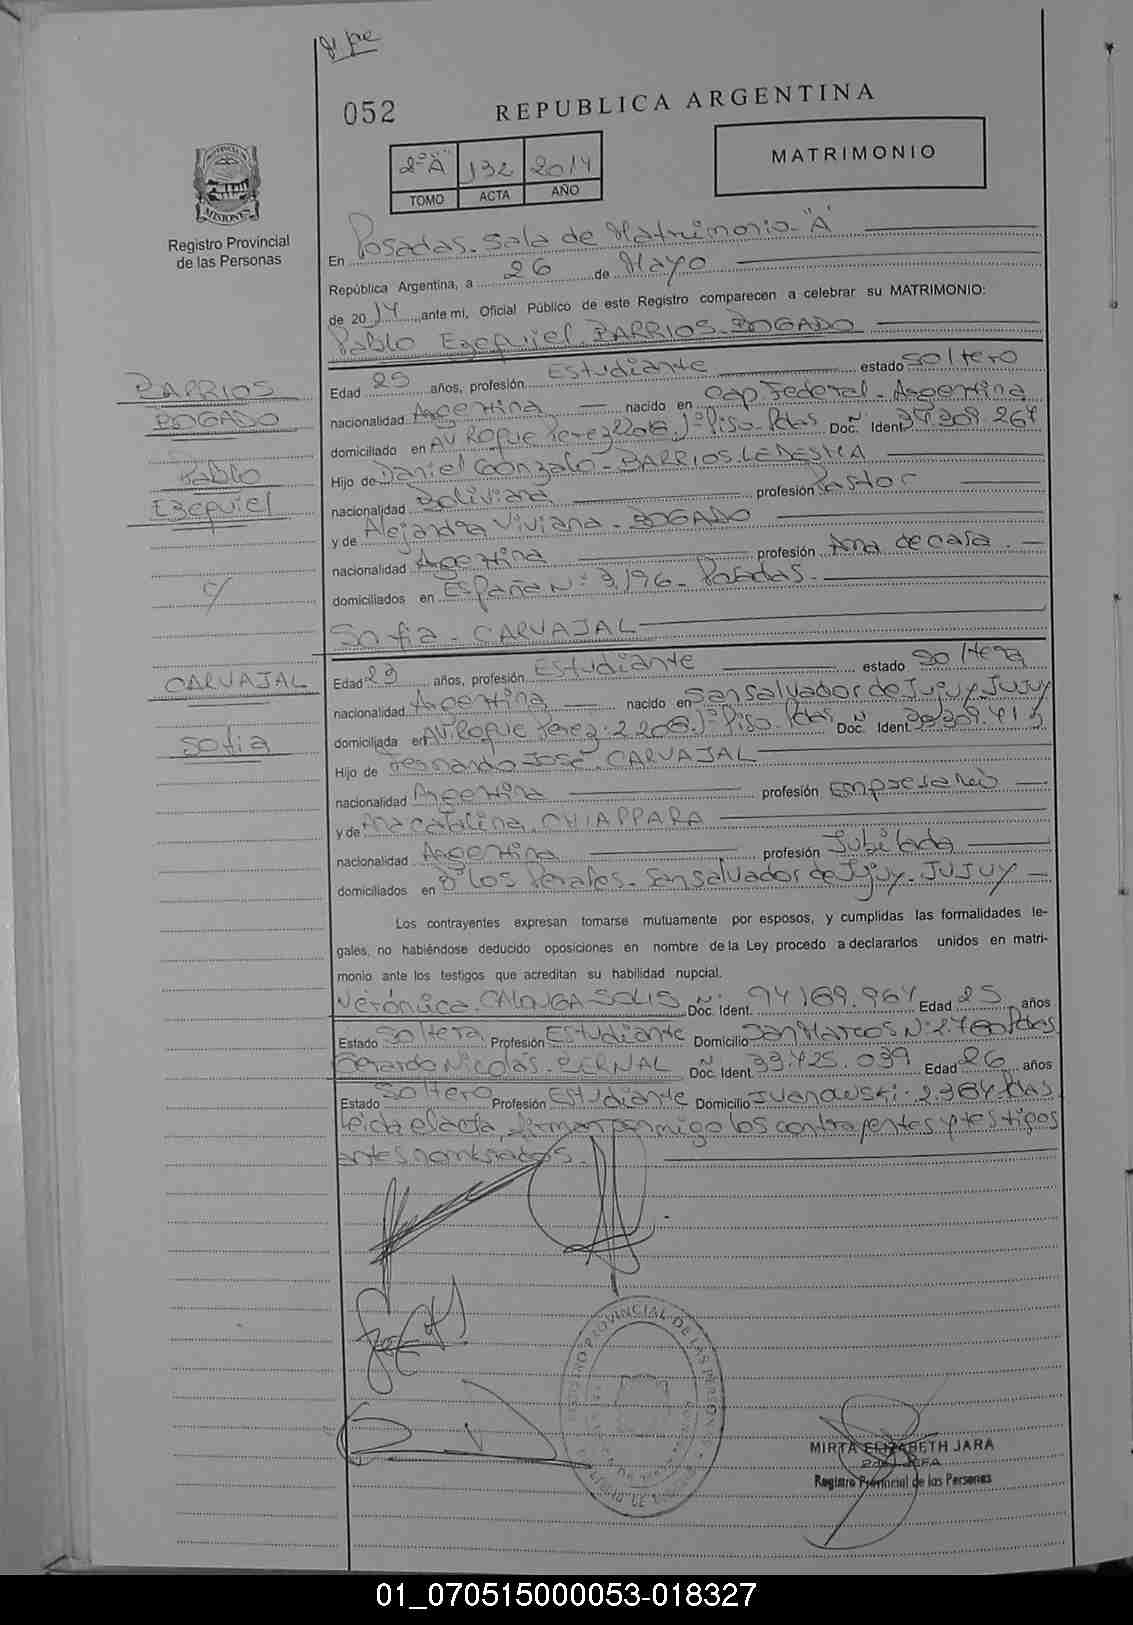 052 REPUBLICA ARGENTINA
2º "A" 132 2014
TOMO ACTA AÑO
MATRIMONIO
Registro Provincial
de las Personas
En Posadas. Sala de Matrimonio "A"
República Argentina, a 26 de Mayo
de 2014, ante mi, Oficial Público de este Registro comparecen a celebrar su MATRIMONIO:
Pablo Ezequiel BARRIOS BOGADO
BARRIOS
BOGADO
Pablo
Ezequiel
c/
CARVAJAL
Sofia
Edad 25 años, profesión Estudiante estado Soltero
nacionalidad Argentina nacido en Cap. Federal - Argentina
domiciliado en AV. Roque Perez 2206 1º Piso. Pdas Doc. Ident. 34.309.264
Hijo de Daniel Gonzalo - BARRIOS LEDESMA
nacionalidad Boliviana profesión Pastor
y de Alejandra Viviana - BOGADO
nacionalidad Argentina profesión Ama de casa.
domiciliados en España Nº 3196 - Posadas.
Sofia - CARVAJAL
Edad 23 años, profesión Estudiante estado Soltera
nacionalidad Argentina nacido en San Salvador de Jujuy. JUJUY
domiciliada en AV. Roque Perez. 2206. 1º Piso. Pdas Doc. Ident.
Hijo de Fernando José. CARVAJAL
nacionalidad Argentina profesión Empresario
y de Ana Catalina. CHIAPPARA
nacionalidad Argentina profesión Jubilada
domiciliados en Bº Los Perales. San Salvador de Jujuy. JUJUY
Los contrayentes expresan tomarse mutuamente por esposos, y cumplidas las formalidades le-
gales, no habiéndose deducido oposiciones en nombre de la Ley procedo a declararlos unidos en matri-
monio ante los testigos que acreditan su habilidad nupcial.
Verónica. SOLIS Doc. Ident. Nº 94169.964 Edad 25 años
Estado Soltera Profesión Estudiante Domicilio San Marcos Nº 2760 Pdas
Gerardo Nicolás. BERNAL Doc. Ident. Nº 33.425.039 Edad 26 años
Estado Soltero Profesión Estudiante Domicilio Ivanowski. 2.364 Pdas
Leida el acta, firman conmigo los contrayentes y testigos
antes nombrados.
REGISTRO PROVINCIAL DE LAS PERSONAS
MIRTA ELIZABETH JARA
JEFA
Registro Provincial de las Personas
01_070515000053-018327